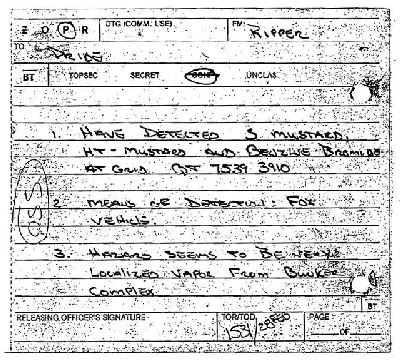 Z O P R DTG (COMM. USE) FM: RIPPER
TO PRIDE
BT TOPSEC SECRET CONF UNCLAS
1. HAVE DETECTED S MUSTARD,
HT-MUSTARD AND BENZINE BROMIDE
AT GRID QT 7539 3910
2. MEANS OF DETECTION: FOX
VEHICLE
3. HAZARD SEEMS TO BE VERY
LOCALIZED VAPOR FROM BUNKER
COMPLEX
BT
RELEASING OFFICER'S SIGNATURE TOR/TOD PAGE
OF